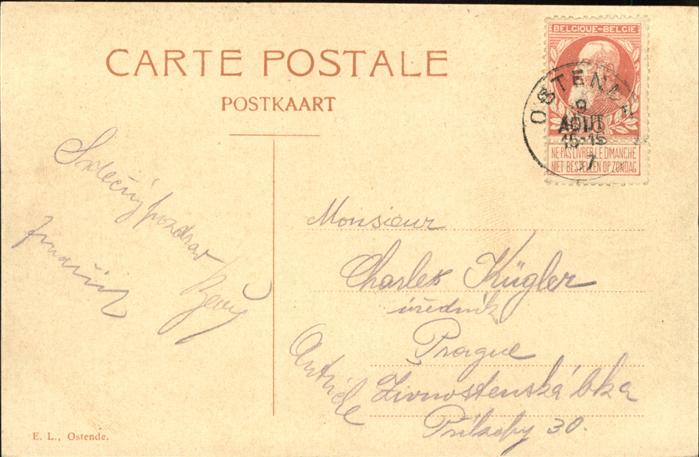 CARTE POSTALE
POSTKAART
BELGIQUE-BELGIE
OSTENDE
9
AOUT
15-15
7
NE PAS LIVRER LE DIMANCHE
NIET BESTELLEN OP ZONDAG
Srdečný pozdrav
Monsieur
Charles Kügler
úředník
Prague
Živnostenská bka
Příkopy 30.
E. L., Ostende.